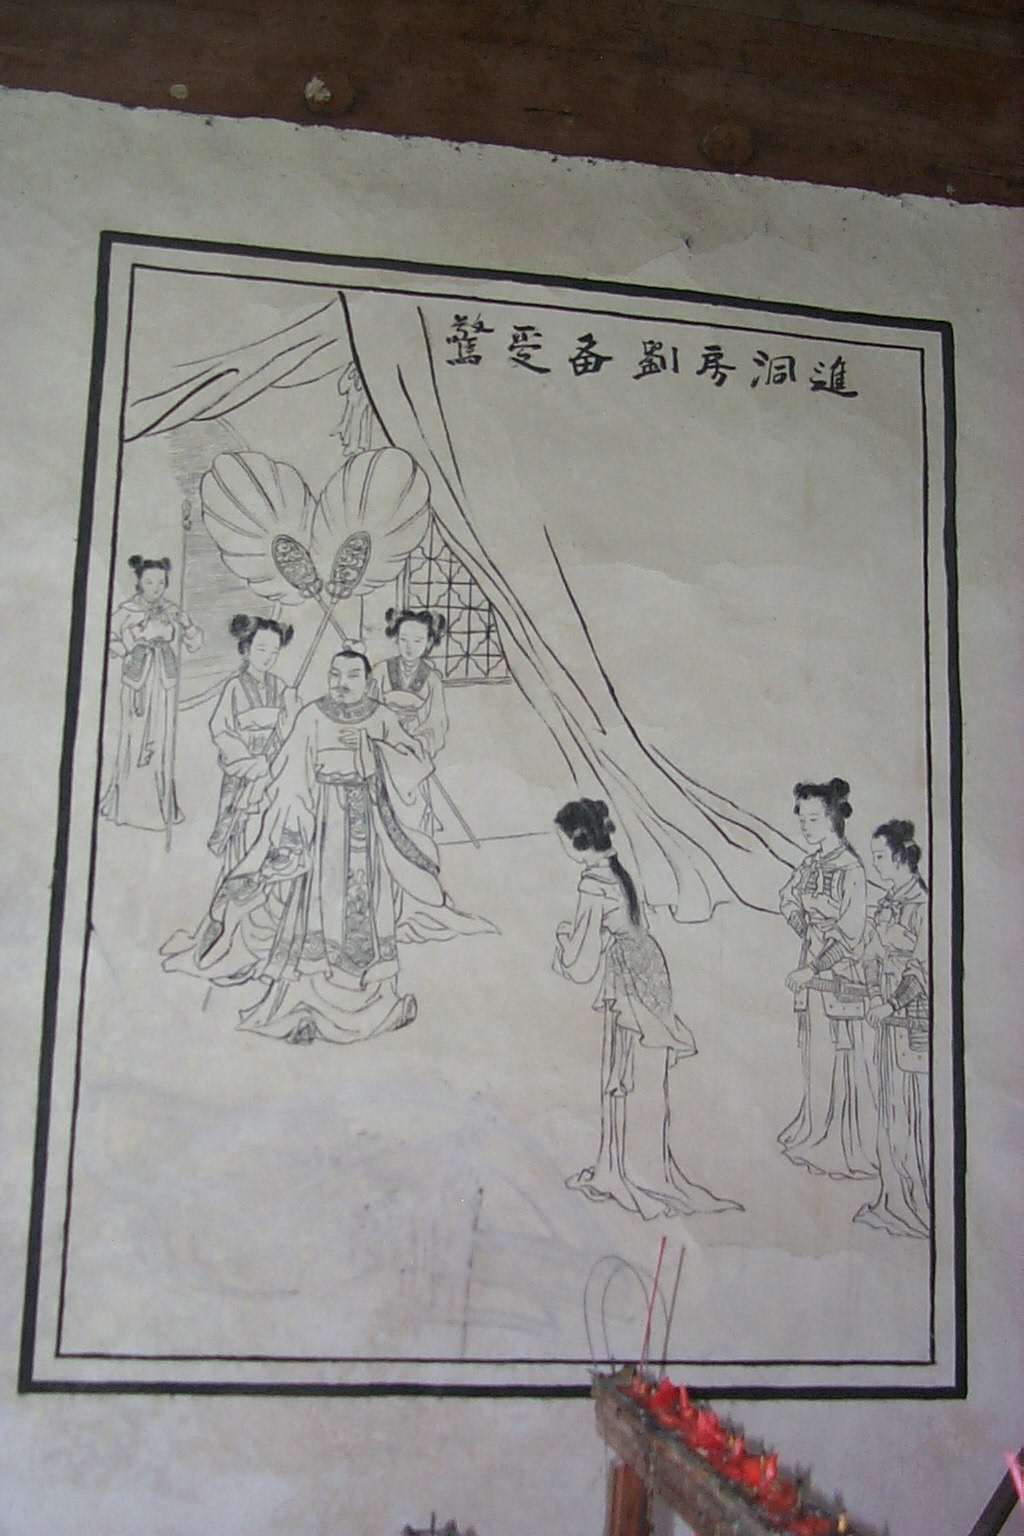 進洞房劉备受驚